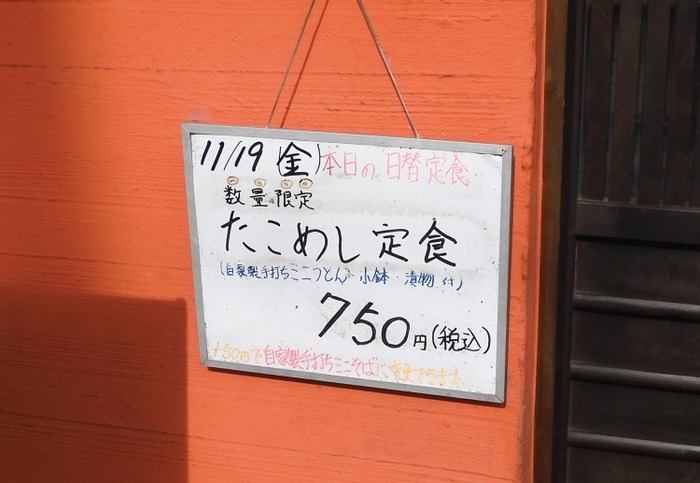 11/19(金)本日の日替定食
数量限定
たこめし定食
(自家製手打ちミニうどん・小鉢・漬物 付)
750円(税込)
+50円で自家製手打ちミニそばに変更できます